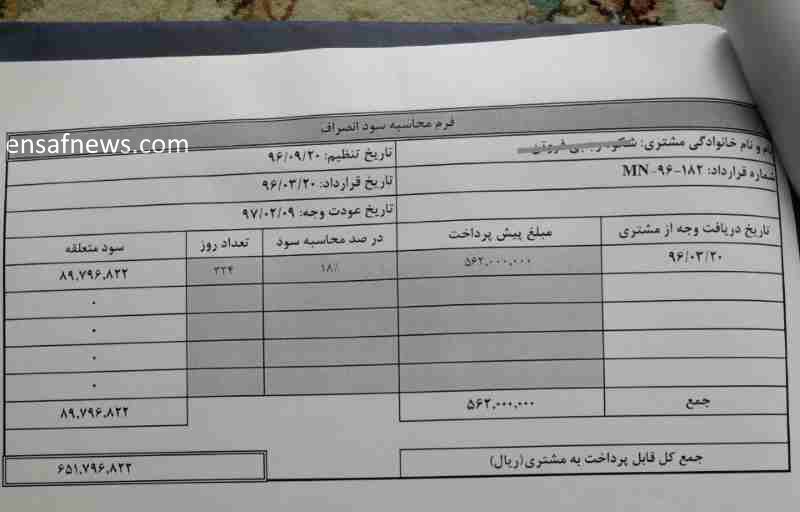 فرم محاسبه سود انصراف
ensafnews.com
نام و نام خانوادگی مشتری:
تاریخ تنظیم: ۹۶/۰۹/۲۰
شماره قرارداد: MN-۹۶-۱۸۲
تاریخ قرارداد: ۹۶/۰۳/۲۰
تاریخ عودت وجه: ۹۷/۰۲/۰۹
تاریخ دریافت وجه از مشتری مبلغ پیش پرداخت در صد محاسبه سود تعداد روز سود متعلقه
۹۶/۰۳/۲۰ ۵۶۲,۰۰۰,۰۰۰ ۱۸٪ ۳۲۴ ۸۹,۷۹۶,۸۲۲
۰
۰
۰
۰
جمع ۵۶۲,۰۰۰,۰۰۰ ۸۹,۷۹۶,۸۲۲
جمع کل قابل پرداخت به مشتری(ریال) ۶۵۱,۷۹۶,۸۲۲